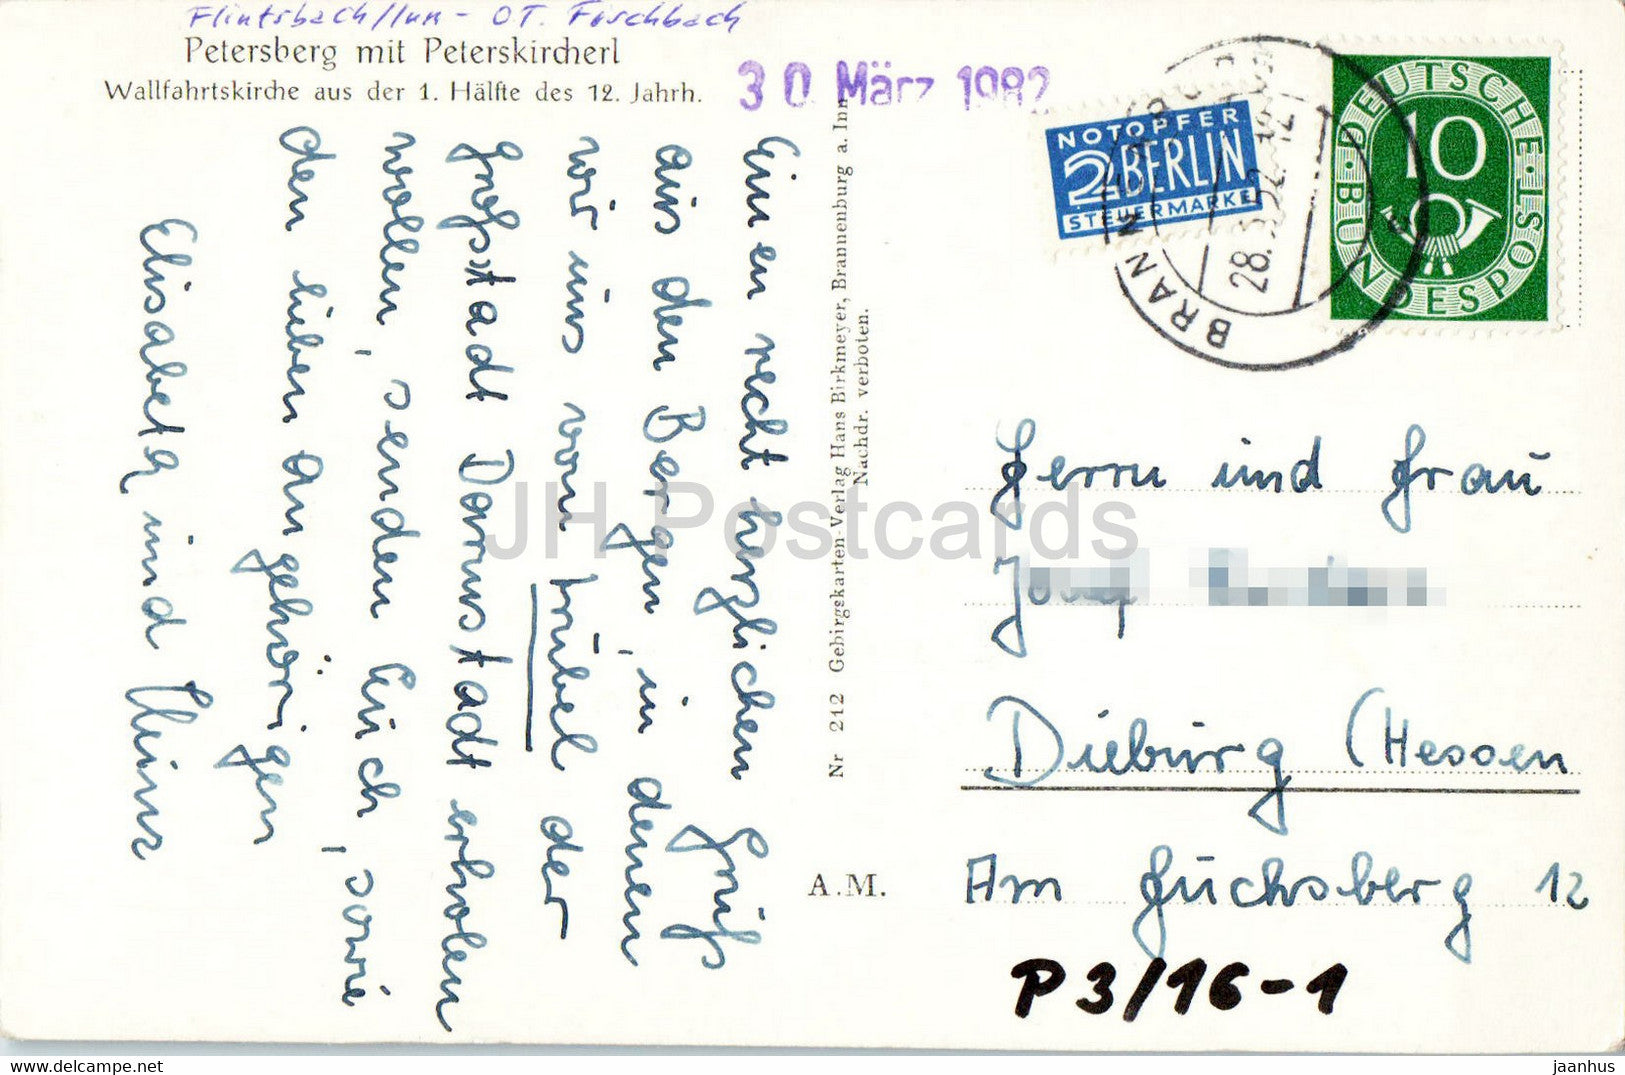 Flintsbach/Inn - OT. Fischbach
Petersberg mit Peterskircherl
Wallfahrtskirche aus der 1. Hälfte des 12. Jahrh.
30 März 1982
NOTOPFER
2 BERLIN
STEUERMARKE
DEUTSCHE BUNDESPOST
10
BRANNENBURG
28.3.52.-12
Einen recht herzlichen Gruß
aus den Bergen, in denen
wir uns vom trübel der
Großstadt Darmstadt erholen
wollen, senden Euch, sowie
den lieben Angehörigen
Elisabeth und Heinz
Nr 212 Gebirgskarten-Verlag Hans Birkmeyer, Brannenburg a. Inn
Nachdr. verboten.
A.M.
Herrn und Frau
Josef
Dieburg (Hessen
Am Fuchsberg 12
P3/16-1
JH Postcards
www.delcampe.net
jaanhus